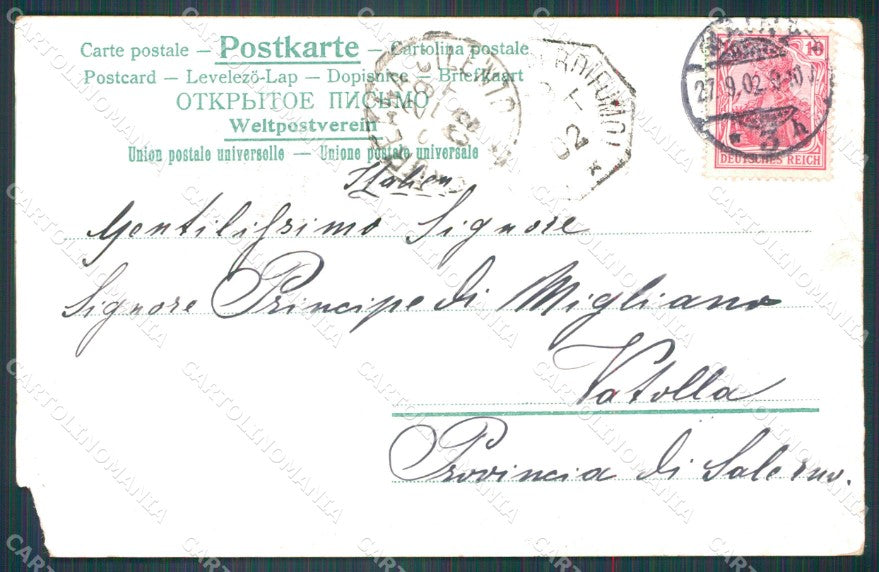 Carte postale – Postkarte – Cartolina postale
Postcard – Levelező-Lap – Dopisnice – Briefkaart
ОТКРЫТОЕ ПИСЬМО
Weltpostverein
Union postale universelle – Unione postale universale
10
27.9.02.
* 3 h
DEUTSCHES REICH
Italien
Gentilissimo Signore
Signore Principe di Migliano
Vatolla
Provincia di Salerno.
CARTOLINOMANIA